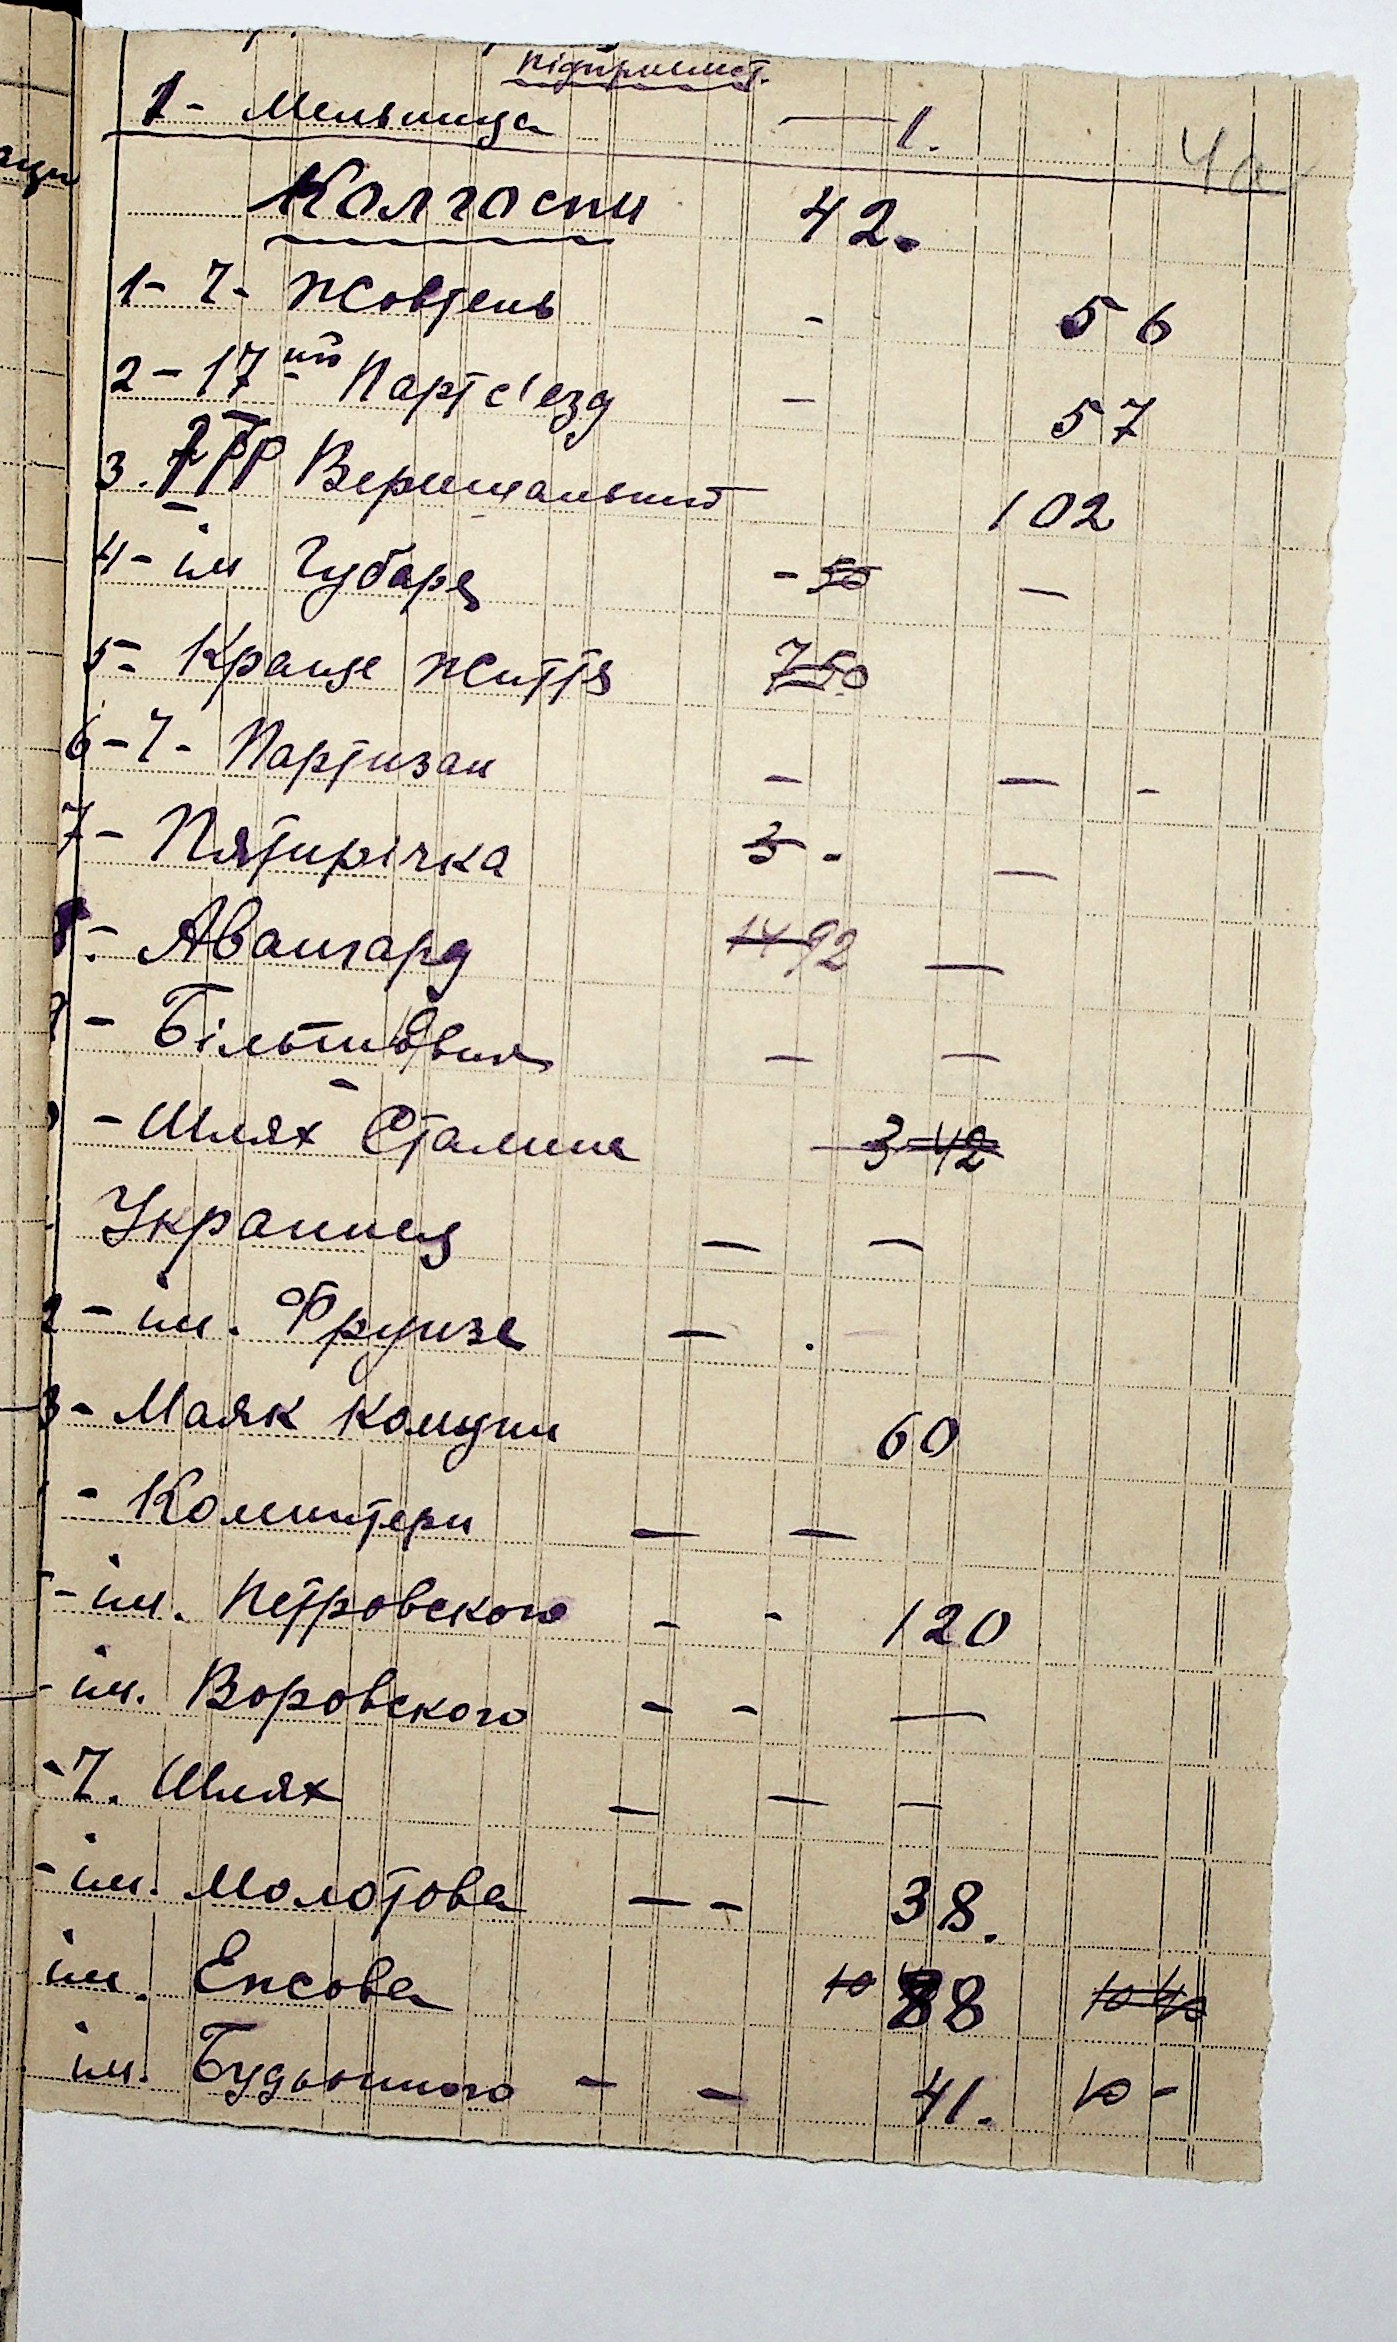 Підприємст.
1- Мельниця — 1.
4а
Колгоспи 42.
1- Ч- Жовтень - 56
2- 17ий Партс'езд — 57
3. Вершальний 102
4- ім Губаря - 50 —
5- Краще життя 750
6- Ч- Партизан — — -
7- Пятирічка 3 - —
8- Авангард 14 92 —
9- Більшовик — —
- Шлях Сталина — 3 42
Украинец — —
2- ім. Фрунзе — . —
3- Маяк Комуни 60
- Коминтерн — —
- ім. Петровского - - 120
- ім. Воровского - - —
- Ч. Шлях — — —
- ім. Молотова — - 38.
ім. Ежова 10 88 10 40
ім. Будьонного - - 41. 10 -